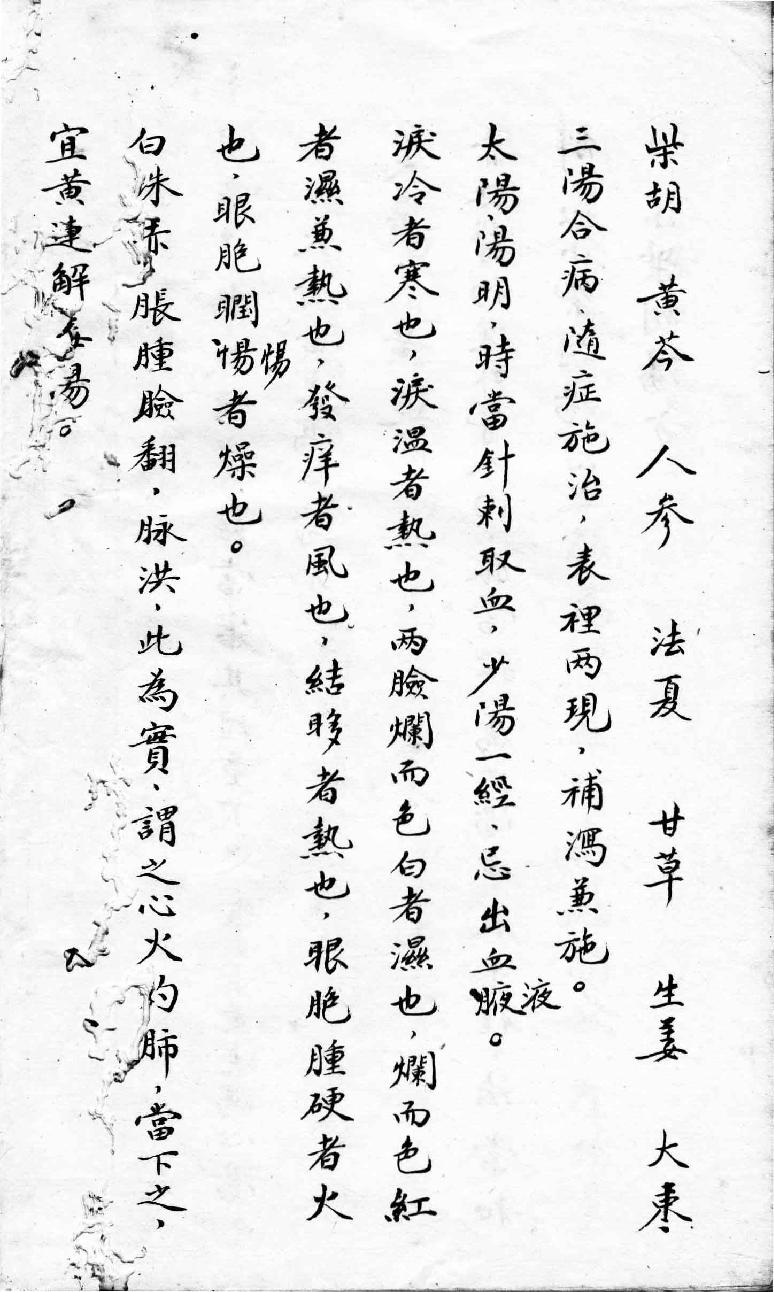 柴胡 黄芩 人參 法夏 甘草 生姜 大棗
三陽合病、隨症施治，表裡两現，補瀉兼施。
太陽、陽明，時當針刺取血，少陽一經、忌出血腋。液
淚冷者寒也，淚温者熱也，两臉爛而色白者濕也，爛而色紅
者濕兼熱也，發痒者風也，結眵者熱也，眼胞腫硬者火
也，眼胞瞤惕者燥也。惕
白珠赤脹腫臉翻，脉洪，此為實、謂之心火灼肺，當下之，
宜黄連解毒湯。